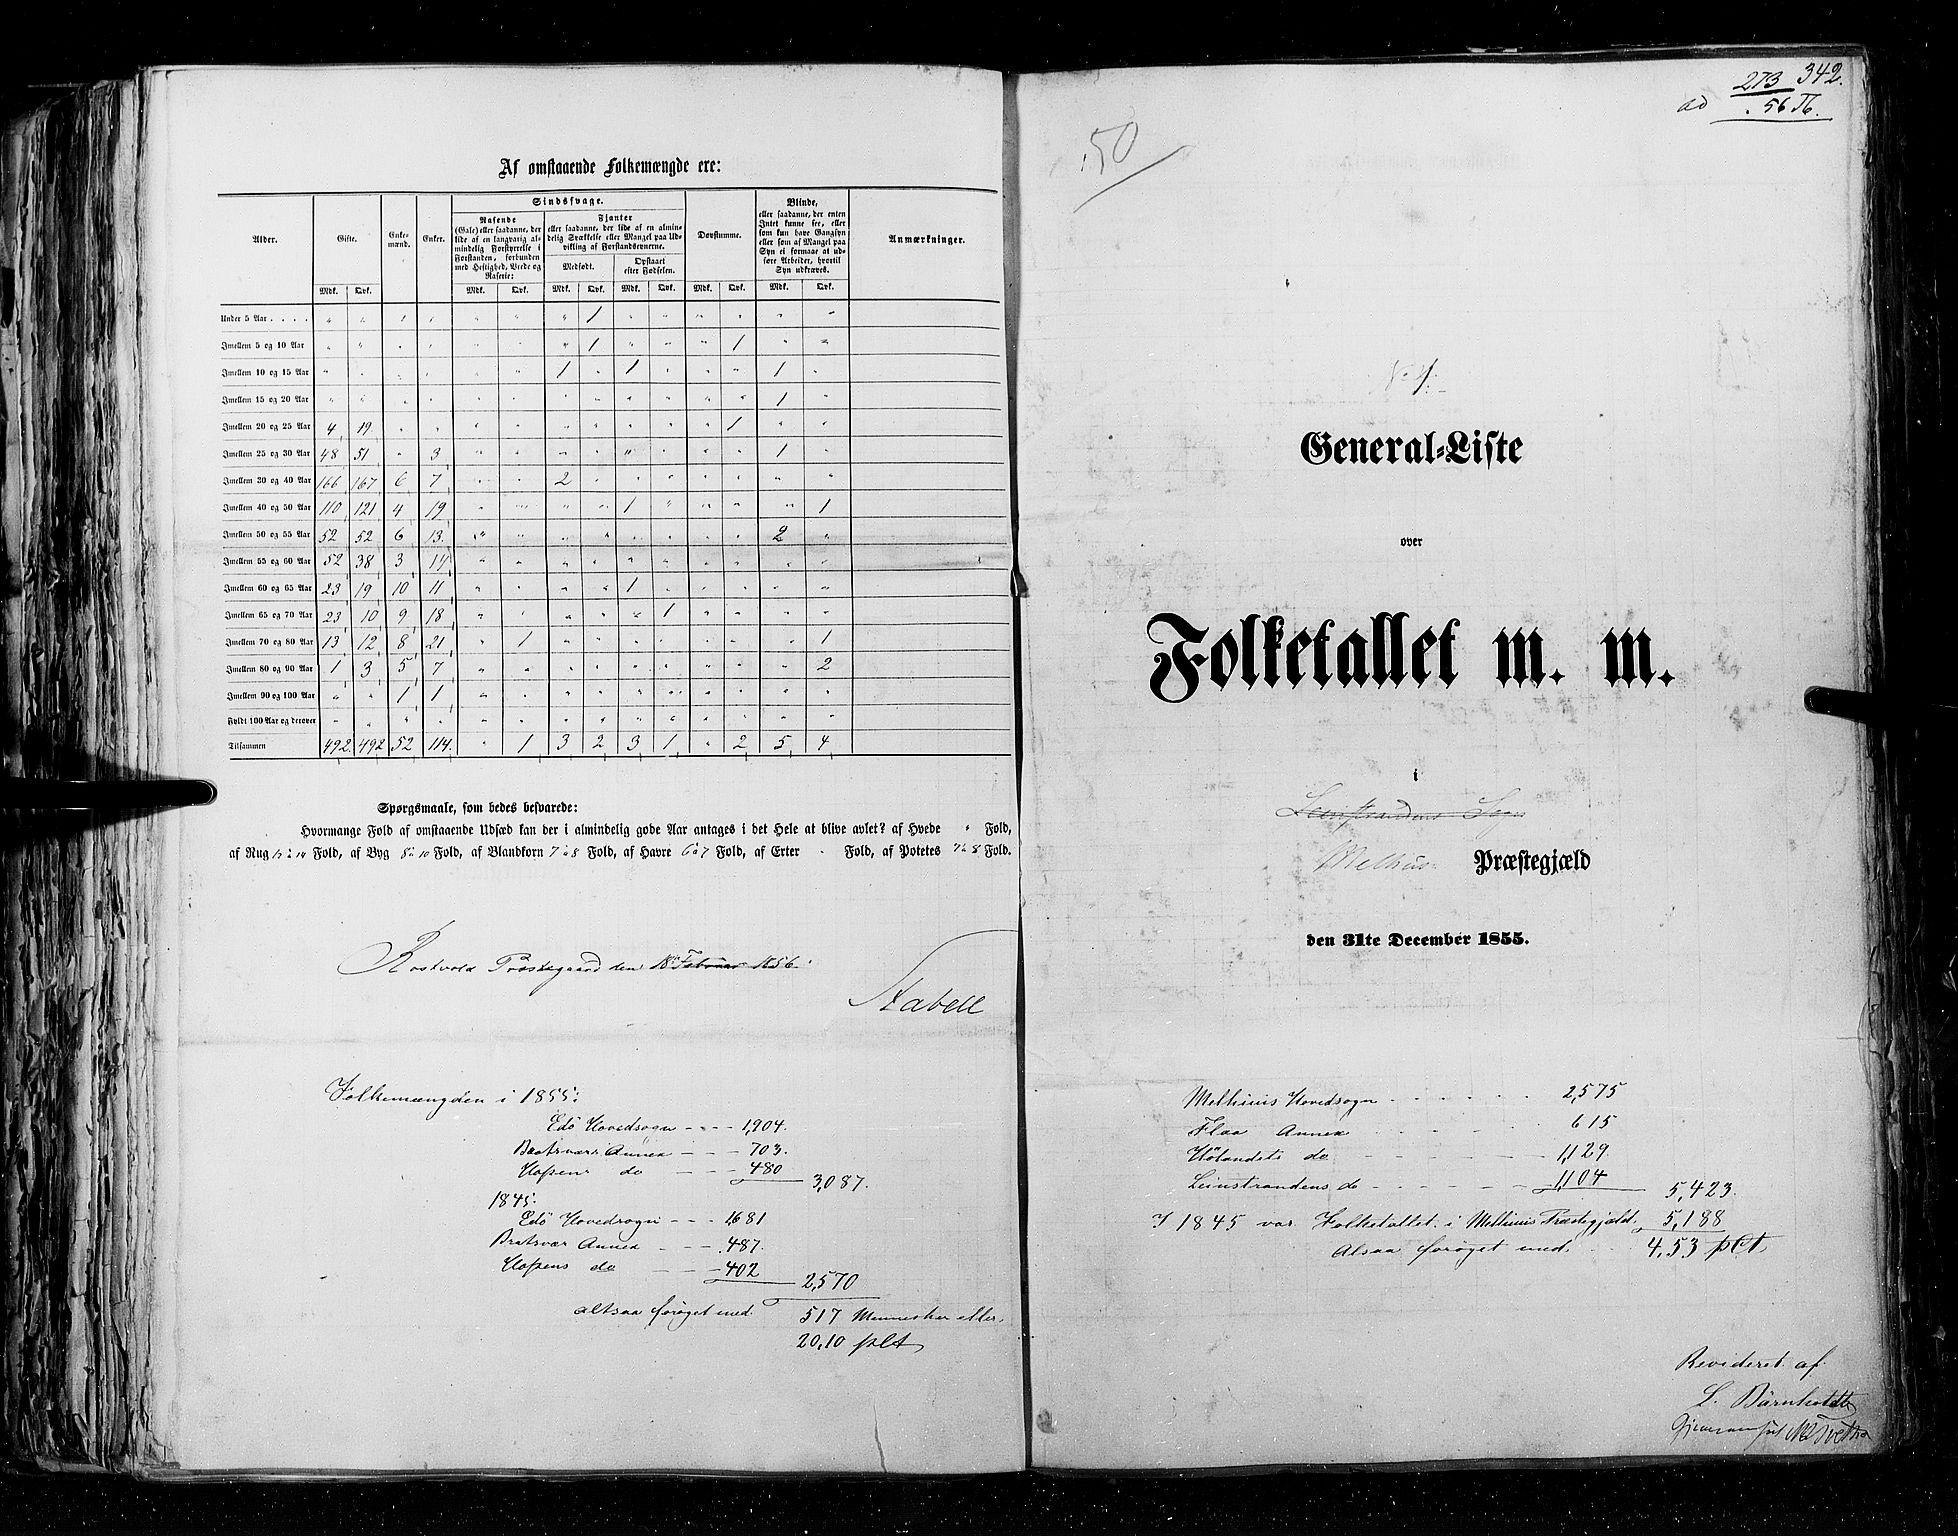 Af omstaaende Folkemængde ere:
Alder. Gifte. Enke-mænd. Enker. Sindssvage. Døvstumme. Blinde, Anmærkninger.
Rasende (Gale) eller saadanne, der lide af en langvarig almindelig Forstyrrelse i Forstanden, forbunden med Heftighed, Vrede og Raserie:
Fjanter eller saadanne, der lide af en almindelig Svækkelse eller Mangel paa Udvikling af Forstandsevnerne.
Medfødt. Opstaaet efter Fødselen.
eller saadanne, der enten Intet kunne see, eller som kun have Gangsyn eller som af Mangel paa Syn ei formaae at udføre Arbeider, hvortil Syn udkræves.
Mdk. Qvk. Mdk. Qvk. Mdk. Qvk. Mdk. Qvk. Mdk. Qvk. Mdk. Qvk.
Under 5 Aar . . . . " " " " " " " 1 " " " " " "
Imellem 5 og 10 Aar " " " " " " " 1 " " " 1 " "
Imellem 10 og 15 Aar " " " " " " 1 " 1 " " " 1 "
Imellem 15 og 20 Aar " " " " " " " " " " " " 1 "
Imellem 20 og 25 Aar 4 19 " " " " " " " " " 1 " "
Imellem 25 og 30 Aar 48 51 " 3 " " " " " " " " 1 "
Imellem 30 og 40 Aar 166 167 6 7 " " 2 " " " " " " "
Imellem 40 og 50 Aar 110 121 4 19 " " " " 1 " " " " 1
Imellem 50 og 55 Aar 52 52 6 13 " " " " " " " " 2 "
Imellem 55 og 60 Aar 52 38 3 14 " " " " " " " " " "
Imellem 60 og 65 Aar 23 19 10 11 " " " " 1 " " " " "
Imellem 65 og 70 Aar 23 10 9 18 " " " " " 1 " " " "
Imellem 70 og 80 Aar 13 12 8 21 " 1 " " " " " " " 1
Imellem 80 og 90 Aar 1 3 5 7 " " " " " " " " " 2
Imellem 90 og 100 Aar " " 1 1 " " " " " " " " " "
Fyldt 100 Aar og derover " " " " " " " " " " " " " "
Tilsammen 492 492 52 114. " 1 3 2 3 1 " 2 5 4
Spørgsmaale, som bedes besvarede:
Hvormange Fold af omstaaende Udsæd kan der i almindelig gode Aar antages i det Hele at blive avlet? af Hvede " Fold,
af Rug 12 a 14 Fold, af Byg 8 a 10 Fold, af Blandkorn 7 a 8 Fold, af Havre 6 a 7 Fold, af Erter - Fold, af Potetes 7 a 8 Fold.
Præstegaard den 18 Februar 1856.
Stabell
Folkemængden i 1855:
Edö Hovedsogn - - - 1,904.
Annex - - - 703.
Hopens do - - - 480
3,087.
1845:
Edö Hovedsogn - - - 1,681
Bratsvær Annex - - - 487.
Hopens do - - - 402
2,570
altsaa forøget med 517 Mennesker eller
20,10 pCt
ad 273 342.
56 Tb.
50
No 4.
General-Liste
over
Folketallet m. m.
i
Leinstrandens Sogn
Melhus Præstegjæld
den 31te December 1855.
Melhuus Hovedsogn - - - - - - 2,575
Flaa Annex - - - - - - 615
Hölandets do - - - - - - 1,129.
Leinstrandens do - - - - - - 1,104
5,423.
I 1845 var Folketallet i Melhuus Præstegjæld. 5,188
Altsaa forøget med - - 4,53 pCt
Revideret af
L.